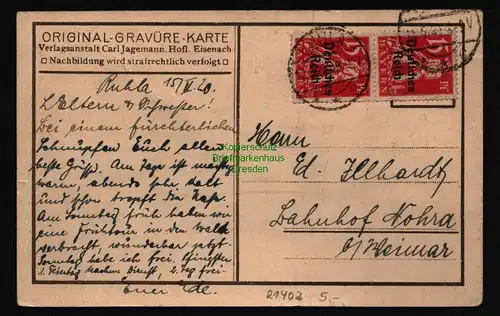 ORIGINAL-GRAVÜRE-KARTE
Verlagsanstalt Carl Jagemann, Hofl. Eisenach
Nachbildung wird strafrechtlich verfolgt
Deutsches Reich
Deutsches Reich
15 15
BAYERN
Ruhla 15/V. 20.
L. Eltern & Schwester!
Bei einem fürchterlichen
Schnupfen Euch allen
beste Grüße. Am Tage ist
warm, abends sehr kalt
und schon tropft die Nase.
Am Sonntag früh haben wir
eine Frühtour in den Wald
verbracht, wunderbar jetzt.
Sonntag habe ich frei. Pfingsten
1. Feiertag machen Dienst, 2. Tag frei.
Euer Ede.
Herrn
Ed. Illhardt
Bahnhof Nohra
b/Weimar
Kopierschutz
Briefmarkenhaus
Dresden
21402 5.-